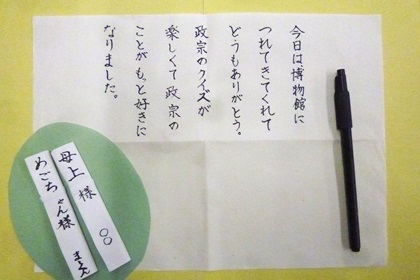 今日は博物館に
つれてきてくれて
どうもありがとう。
政宗のクイズが
楽しくて政宗の
ことがもっと好きに
なりました。
母上様 〇〇
めごちゃん様